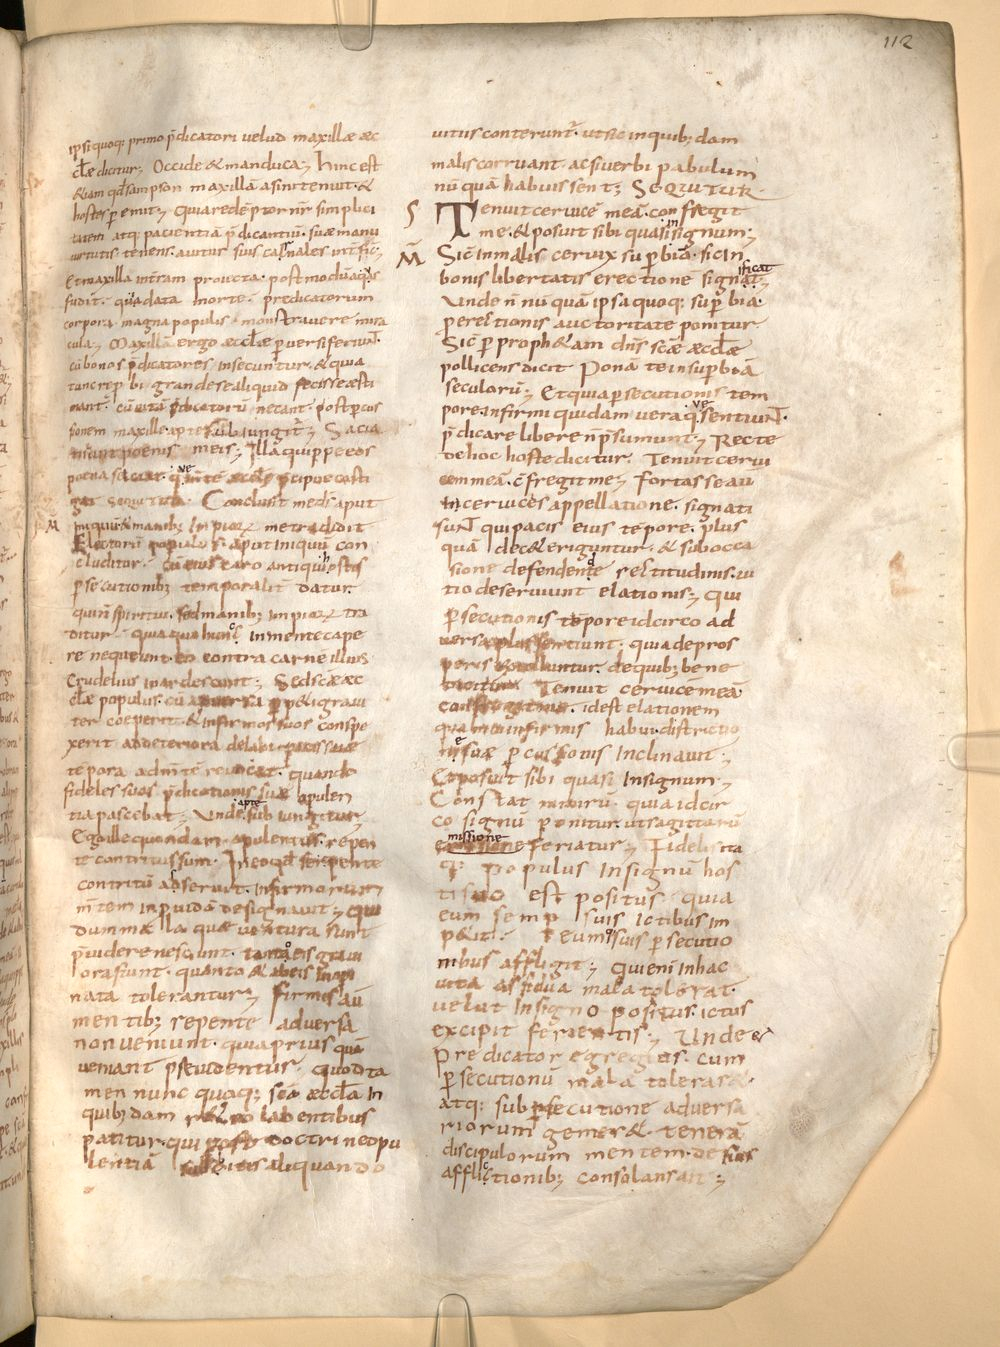 112
ipsi quoq: primo p̄dicatori velud maxillæ æc
cl̄æ dicitur; Occide & manduca; hinc est
& iam qđ sampson maxillā asini tenuit. &
hostes peremit; quia redēptor nr̄ simplici
tatem atq: pacientiā p̄dicantiū. suæ manu
virtutis tenens. a vitiis suis carnales int̄ficit;
Et maxilla in t̄ram proiecta. postmodū aquas
fudit. quia data morte. predicatorum
corpora magna populis monstravere mira
cula; Maxillā ergo æccl̄æ perversi feriunt.
cū bonos p̄dicatores insecuntur. & quia
tunc reprobi grande se aliquid fecisse æsti
mant. cū vitā p̄dicatorū necant. post percus
sionem maxille. apte subiungitur; Sacia
ti sunt poenis meis; Illa quippe eos
poena saciat. que m̄tē æccl̄æ p̄cipue casti
gat. Sequitur. Conclusit me d̄s aput
M iniquū & manib; impiorum me tradidit
Electorū populus aput iniquū con
cluditur. cū eius caro antiqui hostis
persecutionib; temporalit̄ datur.
qui n̄ spiritui. sed manib; impiorum tra
ditur. quia qua hunc in mente cape
re nequeunt. eo contra carnē illius
crudelius inardescunt; Sed scā æc
cl̄æ populus. cū adversa perp&i gravi
ter coeperit. & infirmos suos conspe
xerit ad deteriora delabi. pacis suæ
tēpora ad m̄tē revocat. quando
fideles suos p̄dicationis suæ opulen
tia pascebat; Unde apte subiungitur;
Ego ille quondam opulentus. repen
te contritus sum. In eo qđ se repente
contritū adserunt. infirmorum
m̄tem inprovidā designavit; qui
dum mala quæ ventura sunt
p̄videre nesciunt. tanto eis gravi
ora fiunt. quanto & ab eis inopi
nata tolerantur; firmis aū
mentib; repente adversa
non veniunt. quia prius quā
veniant p̄videntur. quod ta
men nunc quoq; scā æccl̄a in
quib; dam r&ro labentibus
patitur. qui post doctrinę opu
lentiā aliquando
vitiis conterunt̄. ut sic in quib; dam
malis corruant. ac si verbi pabulum
nūquā habuissent; SEQUITUR.
S Tenuit cervicē meā. confregit
me. & posuit sibi quasi in signum;
M Sic in malis cervix superbiā. sic in
bonis libertatis erectionē significat;
Unde n̄nūquā ipsa quoq: superbia.
pro erectionis auctoritate ponitur.
Sic per proph&am dn̄s scæ æccl̄æ
pollicens dicit Ponā te in superbiā
seculorū; Et quia persecutionis tem
pore. infirmi quidam vera que sentiunt.
p̄dicare libere n̄ p̄sumunt; Recte
de hoc hoste dicitur. Tenuit cervi
cem meā. c̄fregit me; Fortasse aū
in cervicēs appellatione. signati
sunt qui pacis eius tēpore. plus
quā dec& eriguntur. & sub occa
sione defendendę rectitudinis. vi
tio deserviunt elationis; qui
persecutionis tēpore idcirco ad
versa plus sentiunt. quia de pros
peris extolluntur. de quib; bene
dicitur Tenuit cervicē meā
confregit me. id est elationem
quam in infirmis habui. districtio
ne suæ percussionis inclinavit;
Et posuit sibi quasi in signum;
Constat nimirū. quia idcir
co signū ponitur. ut sagittarū
emissione feriatur; Fidelis ita
q: populus in signū hos
ti suo est positus. quia
eum semp suis ictibus im
p&it. & eum suis persecutio
nibus affligit; qui enī in hac
vita assidua mala tolerat.
velut in signo positus. ictus
excipit ferientis; Unde &
predicator egregius. cum
persecutionū mala toleras&.
atq: sub persecutione adversa
riorum gemer&. tenerā
discipulorum mentem. de suis
afflictionib; consolans ait;